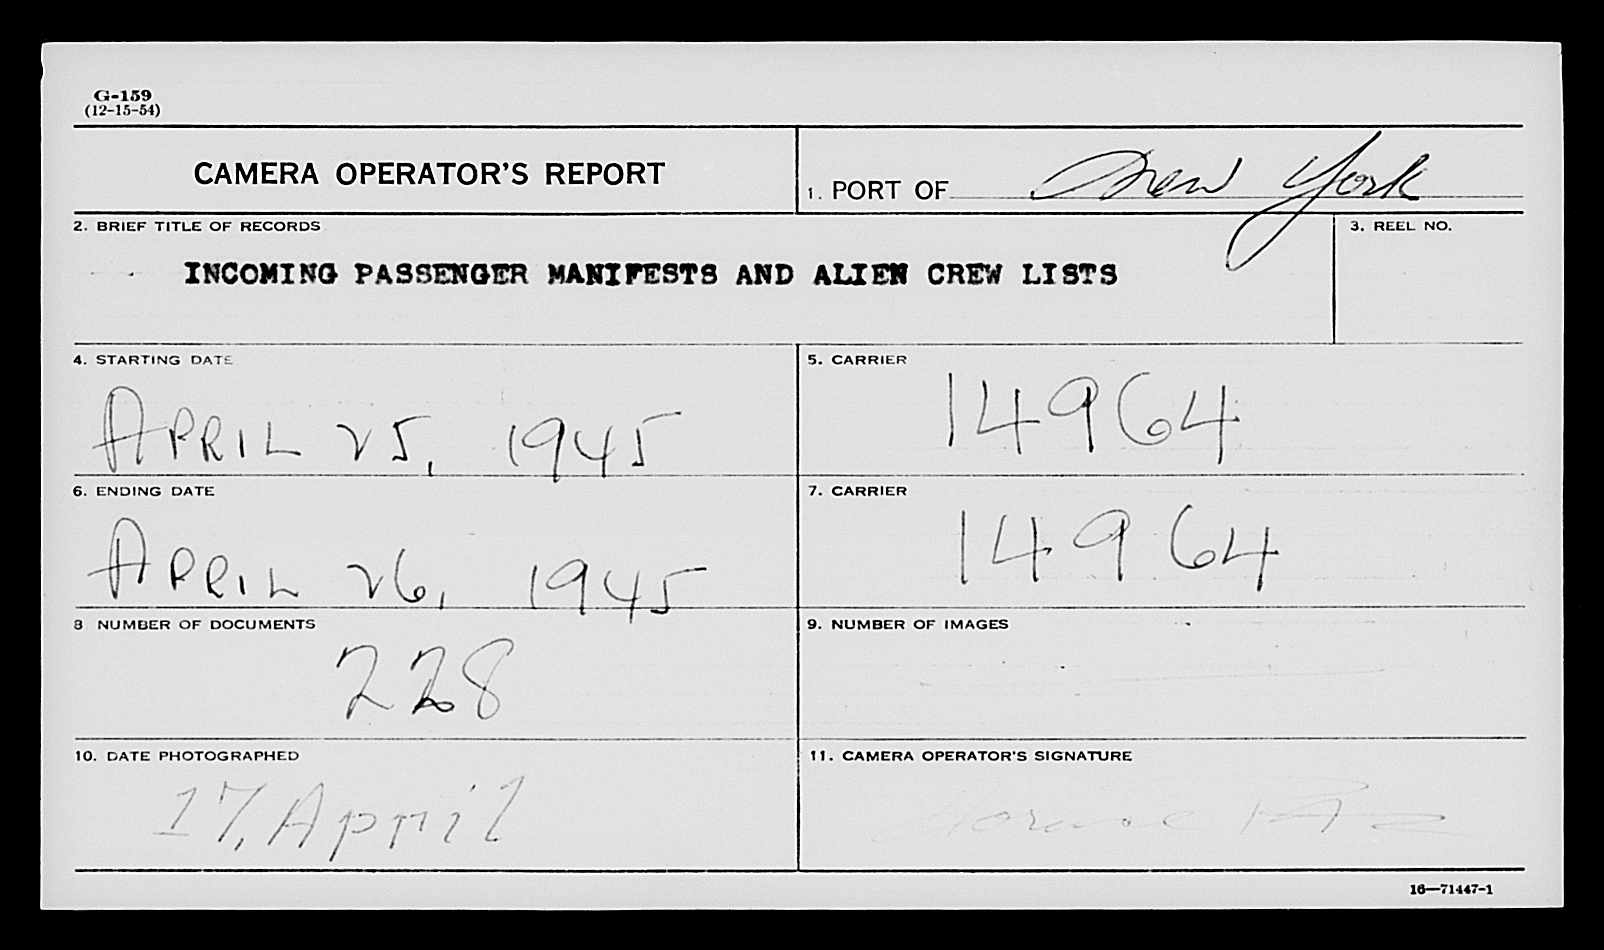 G-159
(12-15-54)
CAMERA OPERATOR'S REPORT
1. PORT OF New York
2. BRIEF TITLE OF RECORDS
3. REEL NO.
INCOMING PASSENGER MANIFESTS AND ALIEN CREW LISTS
4. STARTING DATE
5. CARRIER
APRIL 25, 1945
14964
6. ENDING DATE
7. CARRIER
APRIL 26, 1945
14964
8 NUMBER OF DOCUMENTS
9. NUMBER OF IMAGES
228
10. DATE PHOTOGRAPHED
11. CAMERA OPERATOR'S SIGNATURE
17, April
16—71447-1